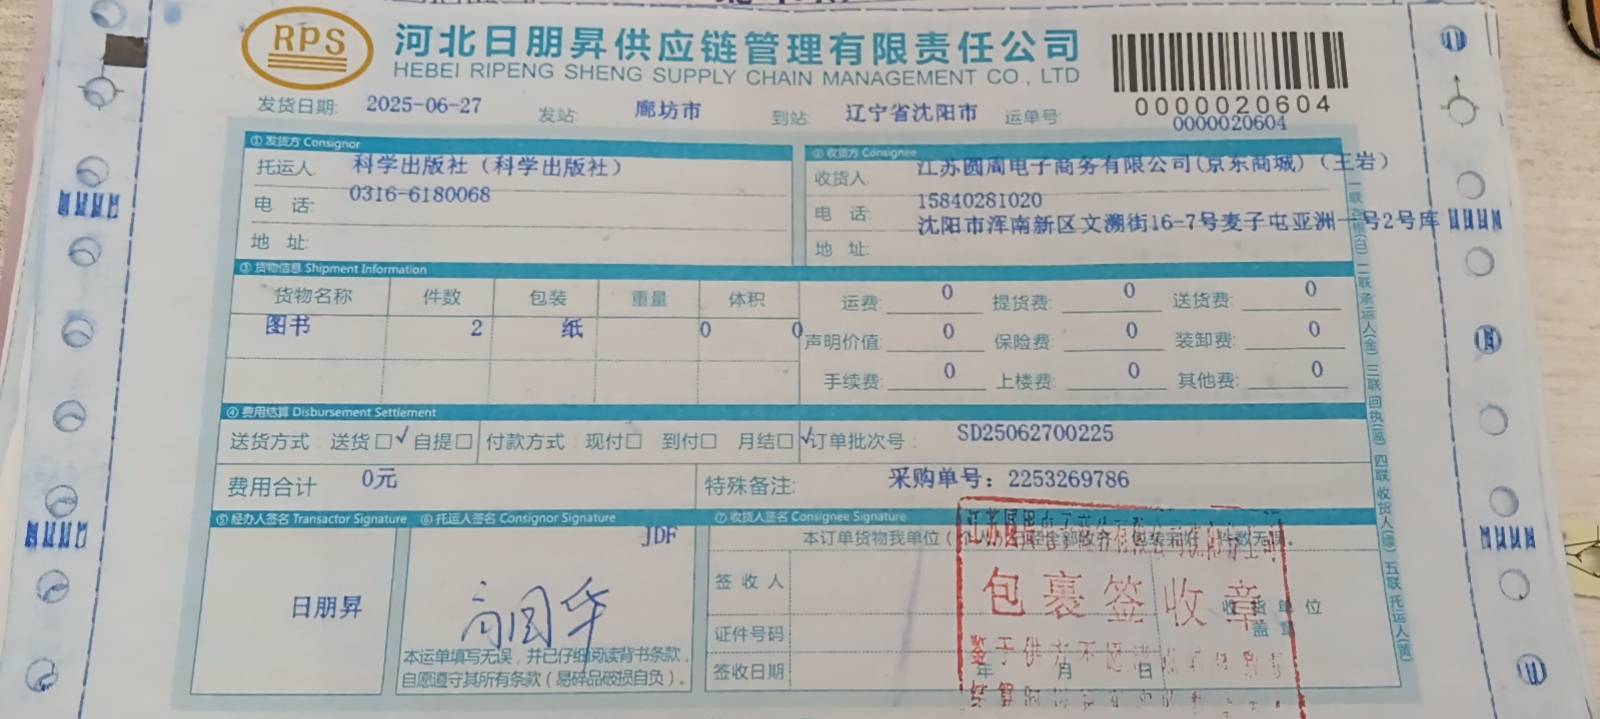 RPS
河北日朋昇供应链管理有限责任公司
HEBEI RIPENG SHENG SUPPLY CHAIN MANAGEMENT CO., LTD
0000020604
发货日期: 2025-06-27 发站: 廊坊市 到站: 辽宁省沈阳市 运单号: 0000020604
① 发货方 Consignor
托运人: 科学出版社（科学出版社）
电 话: 0316-6180068
地 址:
② 收货方 Consignee
收货人: 江苏圆周电子商务有限公司(京东商城)（王岩）
电 话: 15840281020
地 址: 沈阳市浑南新区文溯街16-7号麦子屯亚洲一号2号库
③ 货物信息 Shipment Information
货物名称 件数 包装 重量 体积
图书 2 纸 0 0
运费: 0 提货费: 0 送货费: 0
声明价值: 0 保险费: 0 装卸费: 0
手续费: 0 上楼费: 0 其他费: 0
④ 费用结算 Disbursement Settlement
送货方式: 送货□✓ 自提□ 付款方式: 现付□ 到付□ 月结□✓ 订单批次号: SD25062700225
费用合计 0元 特殊备注: 采购单号：2253269786
⑤ 经办人签名 Transactor Signature
日朋昇
⑥ 托运人签名 Consignor Signature
JDF
本运单填写无误，并已仔细阅读背书条款，
自愿遵守其所有条款（易碎品破损自负）。
⑦ 收货人签名 Consignee Signature
本订单货物我单位
件数无误。
签 收 人
收货单位
盖章
证件号码
签收日期 年 月 日
包裹签收章
二联 承运人(金) 三联 回执(蓝) 四联 收货人(绿) 五联 托运人(黄)